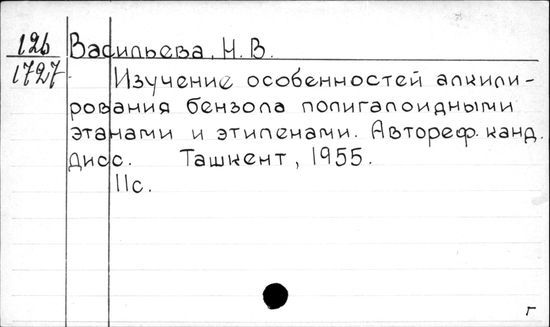 126
1727
Васильева, Н. В.
Изучение особенностей алкили-
рования бензола полигалоидными
этанами и этиленами. Автореф. канд.
дисс. Ташкент, 1955.
11с.
г